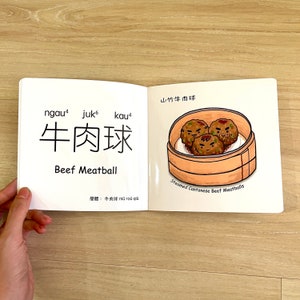 ngau⁴ juk⁶ kau⁴
牛肉球
Beef Meatball
山竹牛肉球
Steamed Cantonese Beef Meatballs